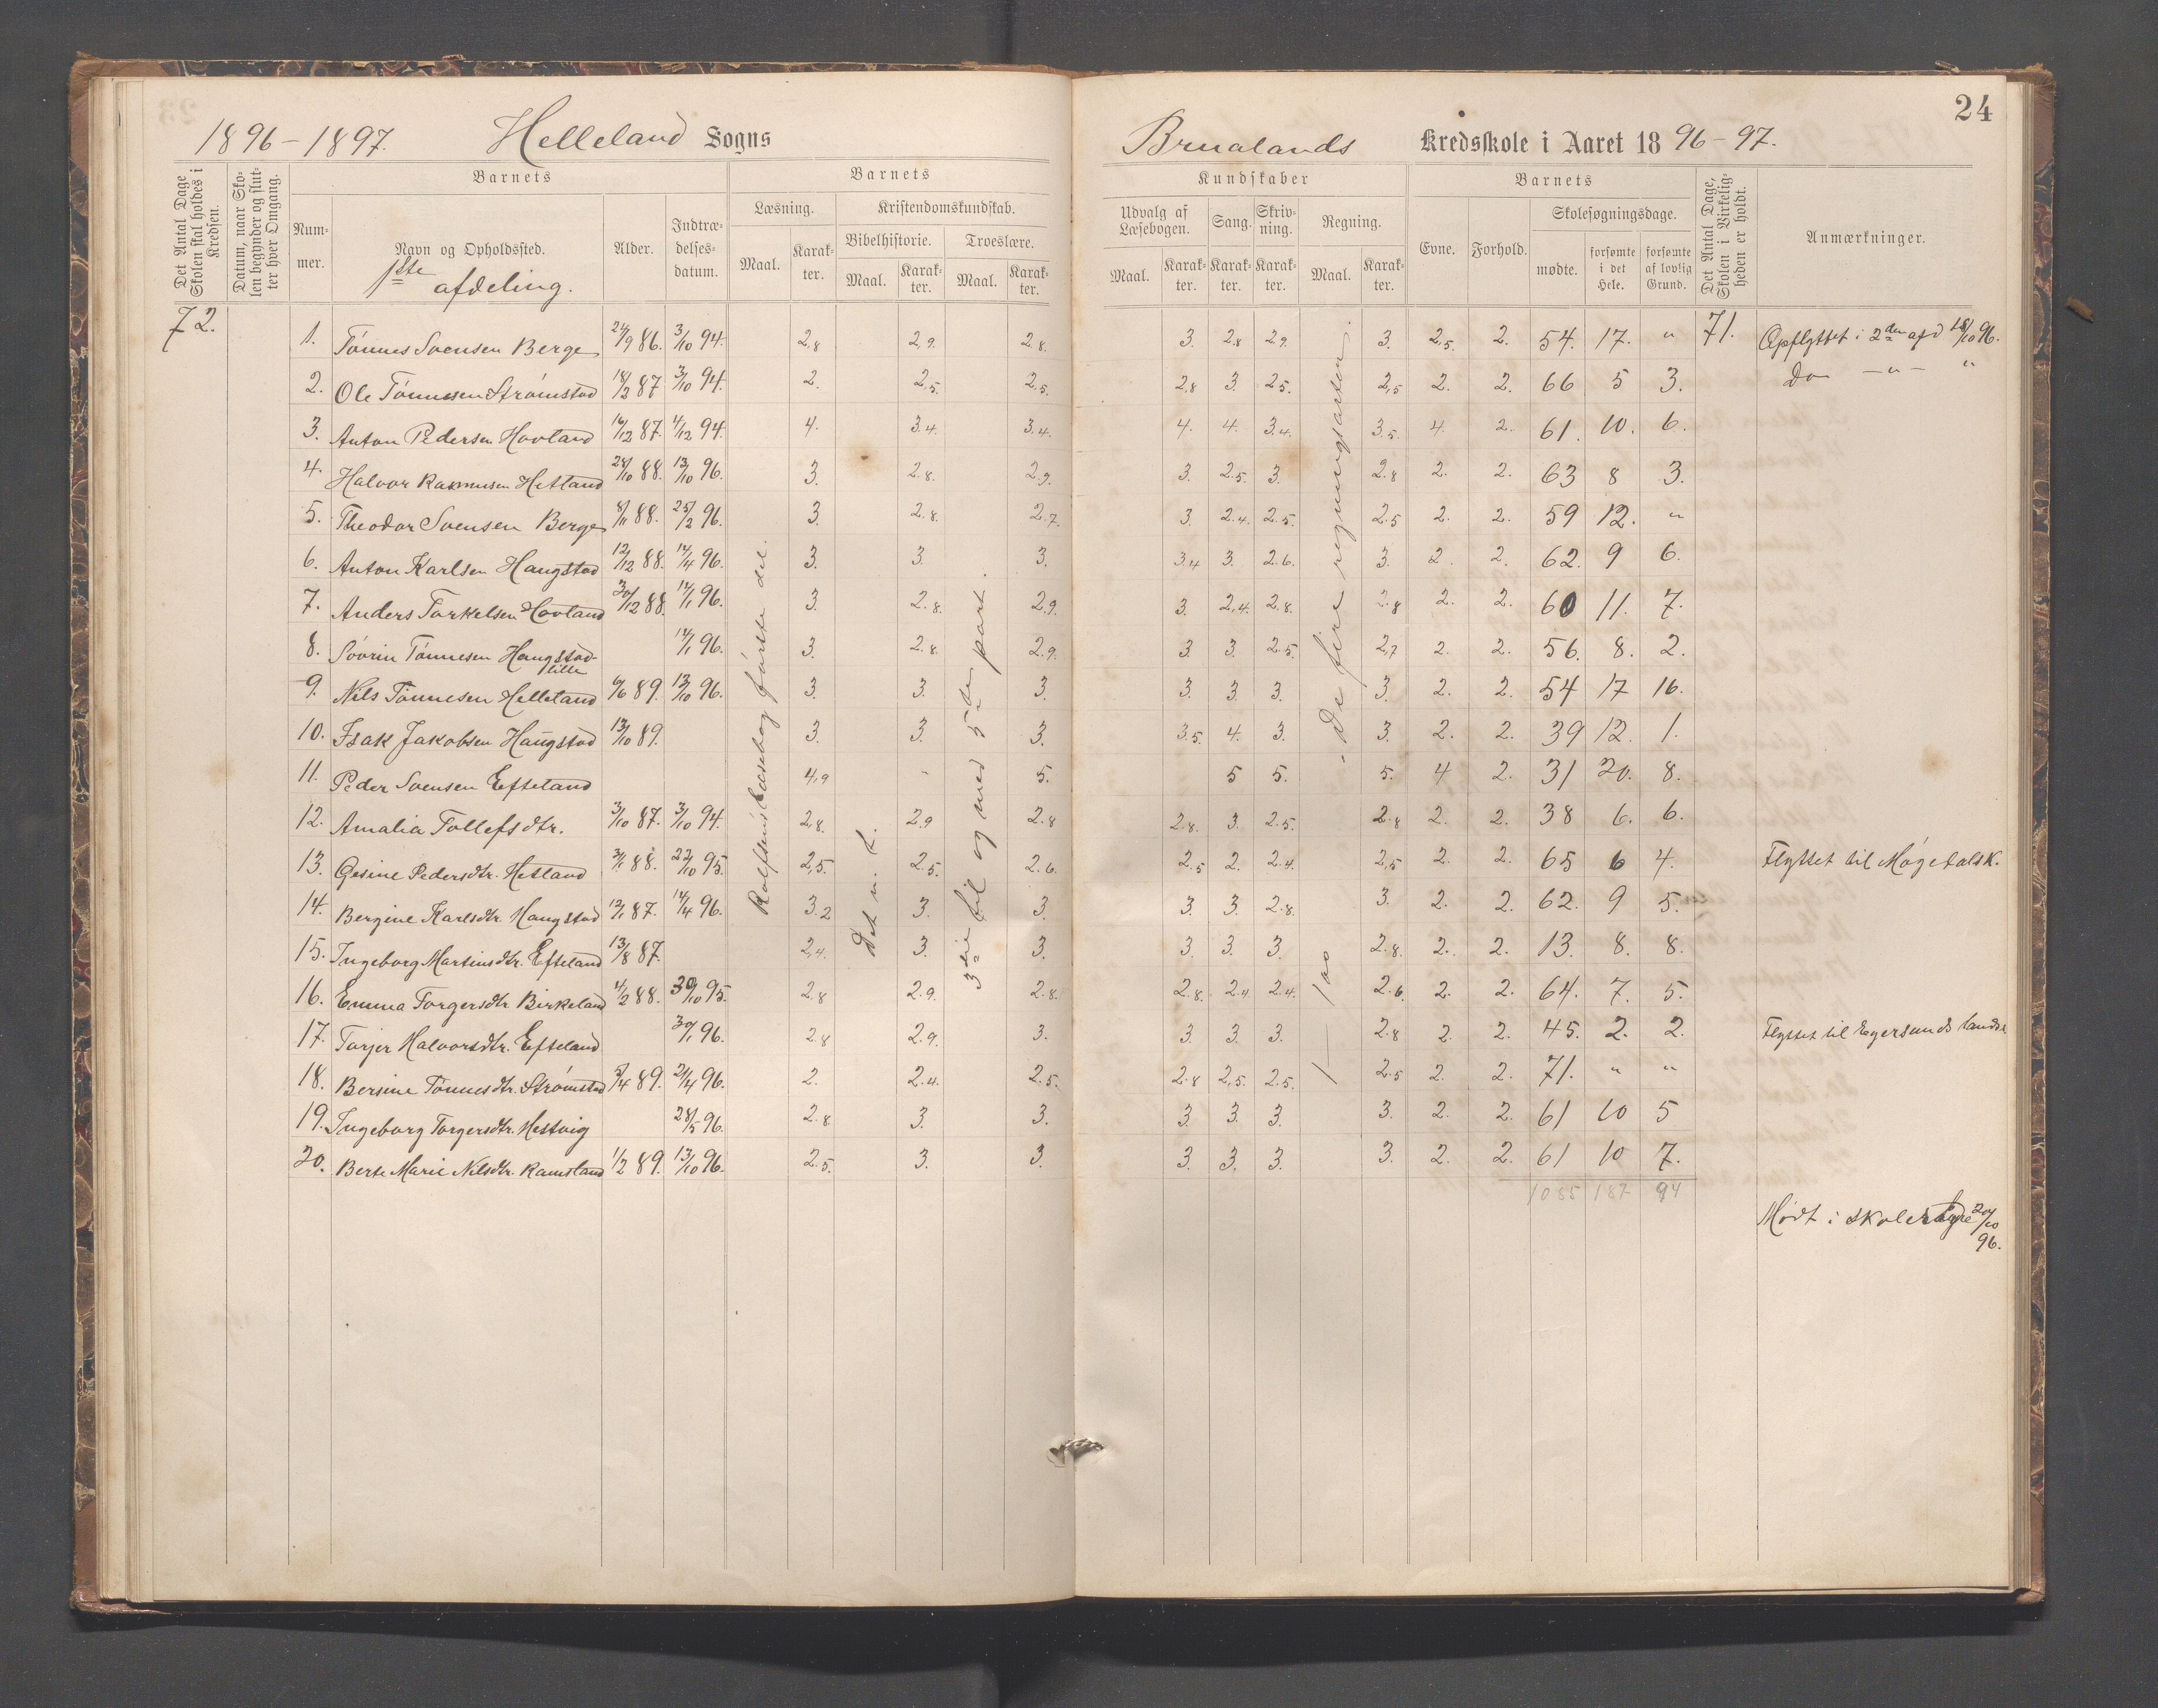 24
1896-1897. Helleland Sogns
Brualands Kredsskole i Aaret 18 96-97.
Det Antal Dage Skolen skal holdes i Kredsen.
Datum, naar Skolen begynder og slutter hver Omgang.
Barnets
Nummer.
Navn og Opholdssted.
1ste afdeling.
Alder.
Indtrædelsesdatum.
Barnets
Læsning.
Maal.
Karakter.
Kristendomskundskab.
Bibelhistorie.
Maal.
Karakter.
Troeslære.
Maal.
Karakter.
Kundskaber
Udvalg af Læsebogen.
Maal.
Karakter.
Sang.
Karakter.
Skrivning.
Karakter.
Regning.
Maal.
Karakter.
Barnets
Evne.
Forhold.
Skolesøgningsdage.
mødte.
forsømte i det Hele.
forsømte af lovlig Grund.
Det Antal Dage, Skolen i Virkeligheden er holdt.
Anmærkninger.
72.
1. Tönnes Svensen Berge 24/9 86. 3/10 94. 2,8 2,9. 2.8. 3. 2.8 2.9. 3. 2,5. 2. 54. 17. " 71. Opflyttet i 2den afd 15/10 96.
2. Ole Tönnesen Strömstad 18/2 87. 3/10 94. 2. 2,5. 2.5. 2,8 3. 2.5. 2,5 2. 2. 66 5 3. Do - " - "
3. Anton Pedersen Hovland 16/12 87. 4/12 94. 4. 3.4. 3.4. 4. 4. 3.4. 3.5. 4. 2. 61. 10. 6.
4. Halvor Rasmusen Hetland 28/10 88. 13/10 96. 3. 2.8. 2.9. 3. 2.5. 3. 2.8 2. 2. 63 8 3.
5. Theodor Svensen Berge 8/11 88. 25/2 96. 3. 2.8. 2.7. 3. 2.4. 2.5. 2.5 2. 2. 59 12. "
6. Anton Karlsen Haugstad 12/12 88. 14/4 96. 3. 3. 3. 3.4 3. 2.6. 3. 2. 2. 62. 9 6.
7. Anders Torkelsen Hovland 30/12 88. 14/1 96. 3. 2.8. 2,9. 3. 2,4. 2.8. 2.8 2. 2. 60 11. 7.
8. Sövrin Tönnesen Haugstad lille 14/1 96. 3. 2.8. 2.9. 3 3. 2.5. 2,7 2. 2. 56. 8. 2.
9. Nils Tönnesen Helleland 6/6 89. 13/10 96. 3. 3. 3. 3. 3. 3. 3. 2. 2. 54 17 16.
10. Isak Jakobsen Haugstad 13/10 89. 3. 3. 3. 3.5. 4. 3. 3. 2. 2. 39 12. 1.
11. Peder Svensen Efteland 4,9 - 5. 5 5. 5. 4 2. 31 20. 8.
12. Amalia Tollefsdtr. 3/10 87. 3/10 94. 2,8. 2.9 2.8 2.8. 3. 2.5. 2.8 2. 2. 38 6. 6.
13. Gesine Pedersdtr. Hetland 3/1 88. 22/10 95. 2,5. 2.5. 2.6. 2.5 2. 2.4. 2,5 2. 2. 65 6 4. Flyttet til Møgedals K.
14. Bergine Karlsdtr. Haugstad 12/1 87. 14/4 96. 3.2 3. 3. 3. 3. 2.8. 3. 2. 2. 62. 9 5.
15. Ingeborg Martinsdtr. Efteland 13/8 87. 2,4. 3. 3. 3. 3. 3. 2.8. 2. 2. 13. 8. 8.
16. Emma Torgersdtr Birkeland 4/2 88. 30/10 95. 2.8 2.9. 2.8. 2.8. 2.4 2.4. 2.6. 2. 2. 64. 7. 5.
17. Torjer Halvorsdtr. Efteland 30/1 96. 2.8 2.9. 3. 3. 3. 3. 2.8 2. 2. 45. 2. 2. Flyttet til Egersunds lands.
18. Bersine Tönnesdtr. Strömstad 5/4 89. 21/4 96. 2. 2.4. 2.5. 2.8 2,5. 2.5. 2.5 2. 2. 71. " "
19. Ingeborg Torgersdtr. Hestvig 28/5 96. 2.8 3. 3. 3. 3. 3. 3. 2. 2. 61 10 5
20. Berte Marie Nilsdtr. Ramsland 1/2 89. 13/10 96. 2.5. 3. 3. 3. 3. 3. 3. 2. 2. 61 10 7.
Rolfsens læsebog første del.
Det n. t.
3die til og med 5te part.
1 - 100 - De fire regningsarter.
1085 187 94
Mödt i skolestyre 20/10 96.